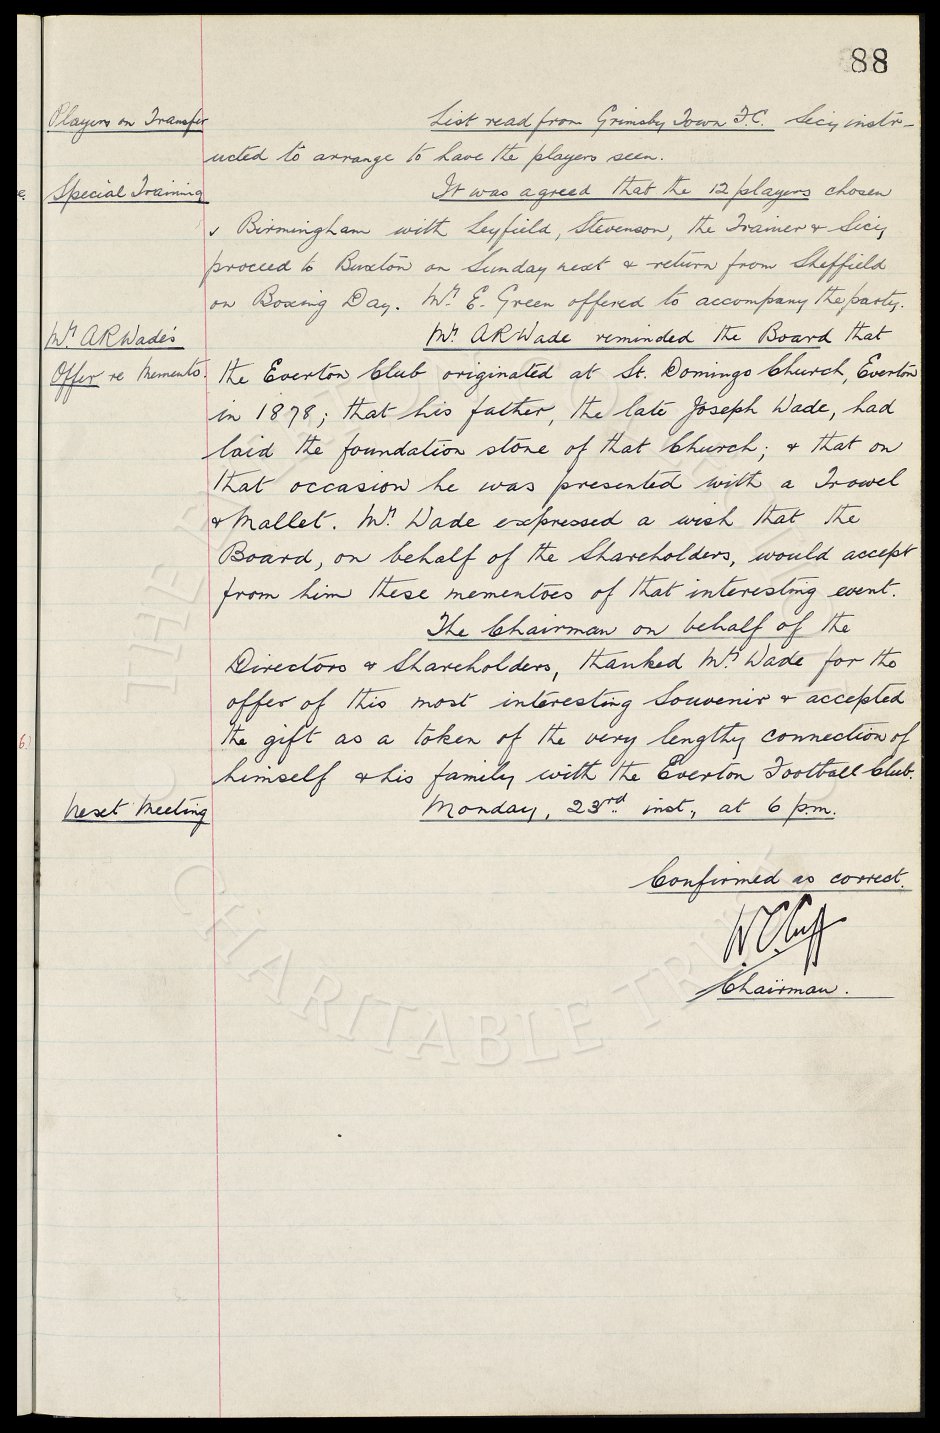 88
Players on Transfer List read from Grimsby Town F.C. Secy instr-
ucted to arrange to have the players seen.
Special Training It was agreed that the 12 players chosen
v Birmingham with Leyfield, Stevenson, the Trainer & Secy
proceed to Buxton on Sunday next & return from Sheffield
on Boxing Day. Mr. E. Green offered to accompany the party.
Mr. A R Wade's Mr. A R Wade reminded the Board that
Offer re Memento. the Everton Club originated at St. Domingo Church, Everton
in 1878; that his father, the late Joseph Wade, had
laid the foundation stone of that Church; & that on
that occasion he was presented with a Trowel
& Mallet. Mr. Wade expressed a wish that the
Board, on behalf of the Shareholders, would accept
from him these mementoes of that interesting event.
The Chairman on behalf of the
Directors & Shareholders, thanked Mr. Wade for the
offer of this most interesting Souvenir & accepted
the gift as a token of the very lengthy connection of
himself & his family with the Everton Football Club.
Next Meeting Monday, 23rd. inst, at 6 p.m.
Confirmed as correct.
W. C. Cuff
Chairman.
CHARITABLE TRUST